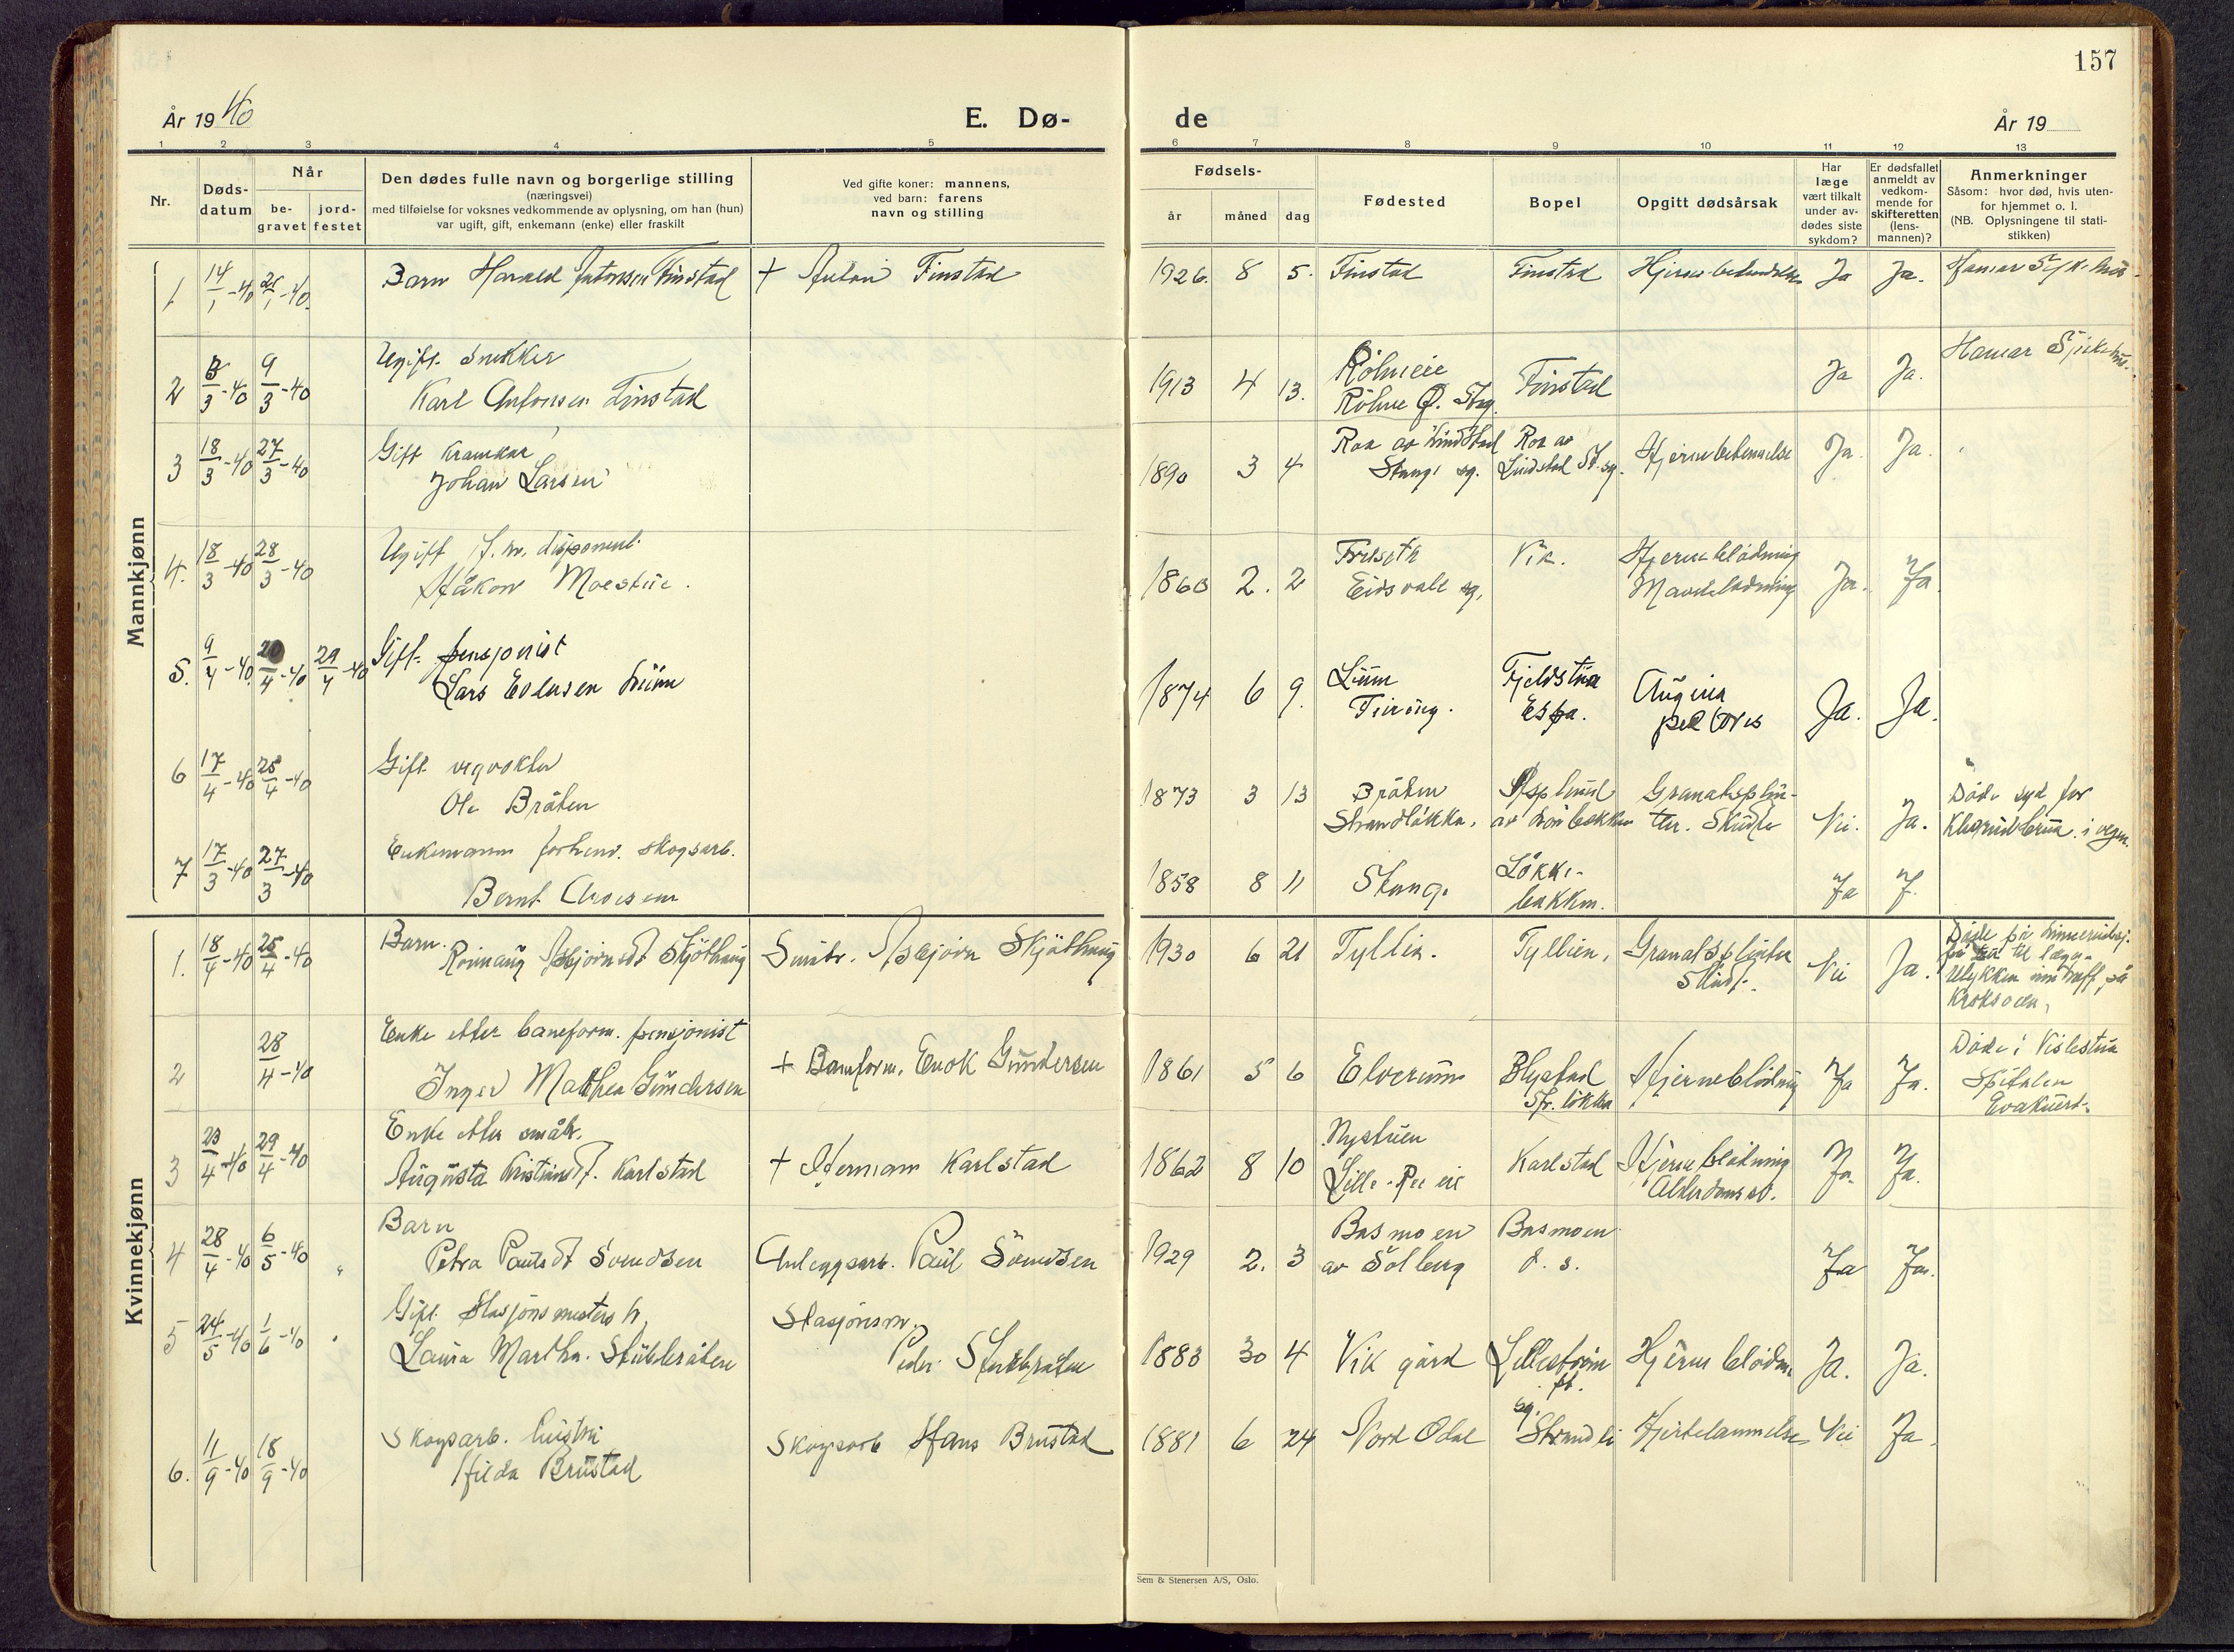 157
År 1940
E. Dø-
de
År 19
1 2 3 4 5 6 7 8 9 10 11 12 13
Nr.
Døds-
datum
Når
be-
gravet
jord-
festet
Den dødes fulle navn og borgerlige stilling
(næringsvei)
med tilføielse for voksnes vedkommende av oplysning, om han (hun)
var ugift, gift, enkemann (enke) eller fraskilt
Ved gifte koner: mannens,
ved barn: farens
navn og stilling
Fødsels-
år
måned
dag
Fødested
Bopel
Opgitt dødsårsak
Har
læge
vært tilkalt
under av-
dødes siste
sykdom?
Er dødsfallet
anmeldt av
vedkom-
mende for
skifteretten
(lens-
mannen)?
Anmerkninger
Såsom: hvor død, hvis uten-
for hjemmet o. l.
(NB. Oplysningene til stati-
stikken)
Mannkjønn
1 14/1-40 Barn Harald Antonsen Finstad + Anton Finstad 1926. 8 5. Finstad Finstad Ja Ja. Hamar
2 8/3-40 9/3-40 Ugift. snekker
Karl Antonsen Finstad 1913 4 13. Finstad Ja Ja. Hamar
3 18/3-40 27/3-40 Gift
Johan Larsen 1890 3 4 Roa av Lindstad Roa av
Stange sg. Lindstad St. sg. Ja. Ja.
4. 18/3-40 28/3-40 Ugift f. v. disponent
Håkon Moestue. 2. 2 Vik. Hjerneblødning
Eidsvoll sg. Ja. Ja.
5. 9/4-40 20/4-40 29/4-40 Gift. pensjonist
Lars Evensen Lium 1874 6 9. Lium Fjeldstua Angina
Feiring. Espa. pectoris Ja. Ja.
6 17/4-40 25/4-40 Gift vegvokter
Ole Bråten 1873 3 13 Bråten Asplund Granatsplin-
Strandløkka. ter. Skudt Nei. Ja. Døde syd for
i vegen.
7 17/3-40 27/3-40 Enkemann forhenv. skogsarb.
Bernt 1858 8 11 Stange Løkke-
bakken. Ja J.
Kvinnekjønn
1. 18/4-40 25/4-40 Barn.
Rønnaug Asbjørnsdt Skjøthaug Småbr. Asbjørn Skjøthaug 1930 6 21 Tyllia. Tyllien. Granatsplinter
Skudt. Nei Ja. Døde på
til læge.
Ulykken inntraff på
Kroksoen.
2 28/4-40 Enke etter baneform. pensjonist
Inger Mathea Gundersen + Baneform. Enok Gundersen 1861 5 6 Elverum Blystad Hjerneblødning Ja Ja. Døde i Vislestua
Str. løkka Spitalen
Evakuert.
3 23/4-40 29/4-40 Enke etter småbr.
Augusta Kristiansdt. Karlstad + Herman Karlstad 1862 8 10 Nystuen Karlstad Hjerneblødning
Alderdomssv. Ja. Ja.
4 28/4-40 6/5-40 Barn
Petra Paulsdt Svendsen Anleggsarb. Paul Svendsen 1929 2. 3 Basmoen Basmoen
av Solberg d. s. Ja Ja.
5 24/5-40 1/6-40 Gift Stasjonsmesters h.
Laura Martha Stubberåten Stasjonsm.
Peder Stubberåten 1883 30 4 Vik gård Lillestrøm st. Hjerneblødn. Ja. Ja.
6. 11/9-40 18/9-40 Skogsarb. hustru
Hilda Brustad Skogsarb Hans Brustad 1881 6 24 Nord Odal Strandli Hjertelammelse Nei Ja.
Sem & Stenersen A/S, Oslo.